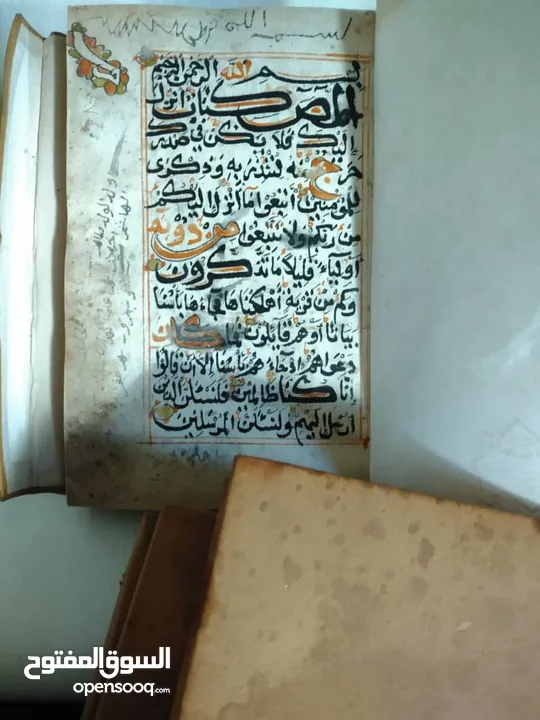 بسم الله
بسم الله الرحمن الرحيم
المص كتاب انزل
اليك فلا يكن في صدرك
حرج منه لتنذر به وذكرى
للمومنين اتبعوا ما انزل اليكم
من ربكم ولا تتبعوا من دونه
اولياء قليلا ما تذكرون
وكم من قرية اهلكناها فجاءها باسنا
بياتا او هم قايلون فما كان
دعويهم اذ جاءهم باسنا الا ان قالوا
انا كنا ظالمين فلنسئلن الذين
ارسل اليهم ولنسئلن المرسلين
السوق المفتوح
opensooq.com